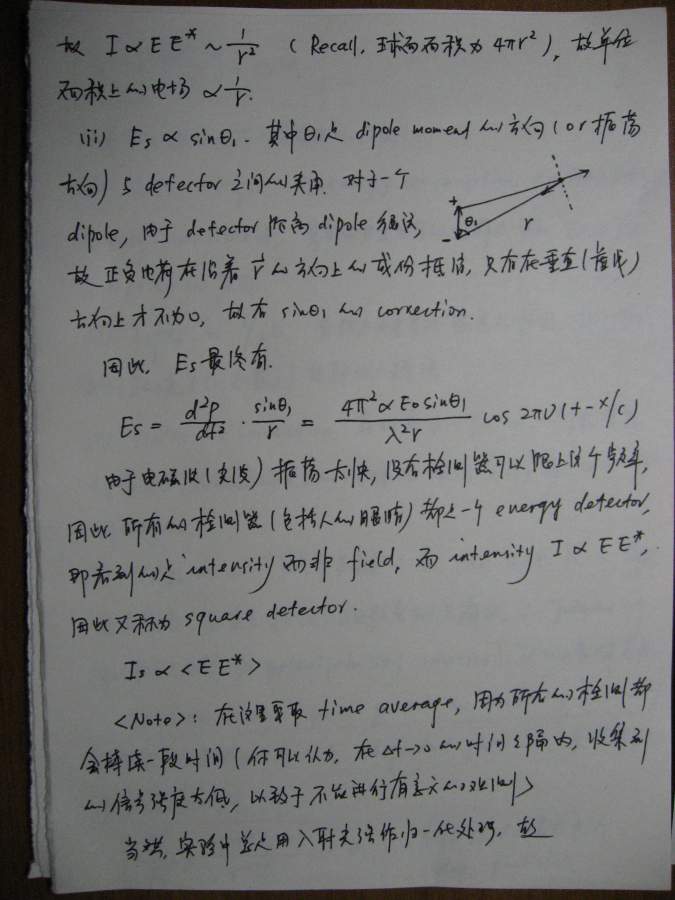 故 I ∝ E E* ~ 1/r² ( Recall, 球面面积为 4πr² ), 故单位
面积上的电场 ∝ 1/r.
(ii) Es ∝ sinθ₁. 其中θ₁是 dipole moment 的方向 ( or 振荡
方向) 与 detector 之间的夹角. 对于一个
dipole, 由于 detector 距离 dipole 很远,
+
-
θ₁
r
故正负电荷在沿着 r⃗ 的方向上的成份抵消, 只有在垂直(
方向上才不为0, 故有 sinθ₁ 的 correction.
因此, Es 最终有.
Es = d²p/dt² · sinθ₁/r = 4π²αE₀sinθ₁/λ²r cos 2πν(t-x/c)
由于电磁波(光波) 振荡太快, 没有检测器可以跟上这个频率,
因此 所有的检测器 (包括人的眼睛) 都是一个 energy detector,
即看到的是 intensity 而非 field, 而 intensity I ∝ EE*,
因此又称为 square detector.
Is ∝ <EE*>
<Note>: 在这里要取 time average, 因为所有的检测都
会持续一段时间 ( 你可以认为, 在 Δt→0 的时间间隔内, 收集到
的信号强度太低, 以致于不能进行有意义的观测)
当然, 实验中总是用入射光强作归一化处理, 故